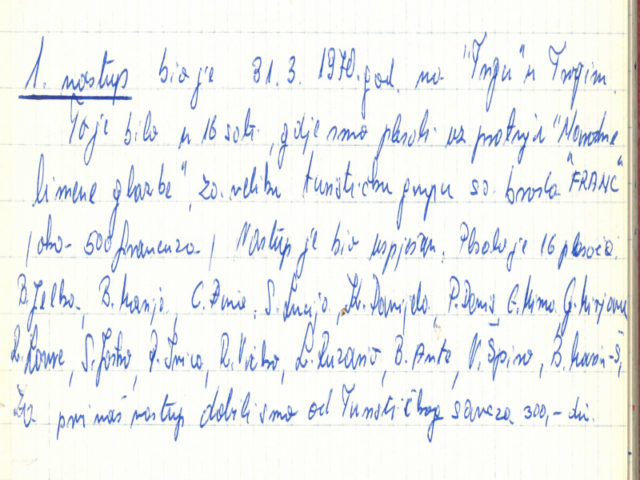 1. nastup bio je 31.3.1970.god. na "Trgu" u Trogiru.
To je bilo u 16 sati, gdje smo plesali uz pratnju "Narodne
limene glazbe", za veliku turističku grupu sa broda "FRANC"
/ oko 500 francuza / Nastup je bio uspješan. Plesalo je 16 plesača.
B. Jelka, B. Ranja, C. Denia, S. Lucija, Danijela, P. Denis, G. Mirjana
S. Joško, P. Ivica, R. Vicko, L. Ruzana, B. Ante, V. Špiro, B.
Za prvi naš nastup dobili smo od Turističkog saveza 300,- din.